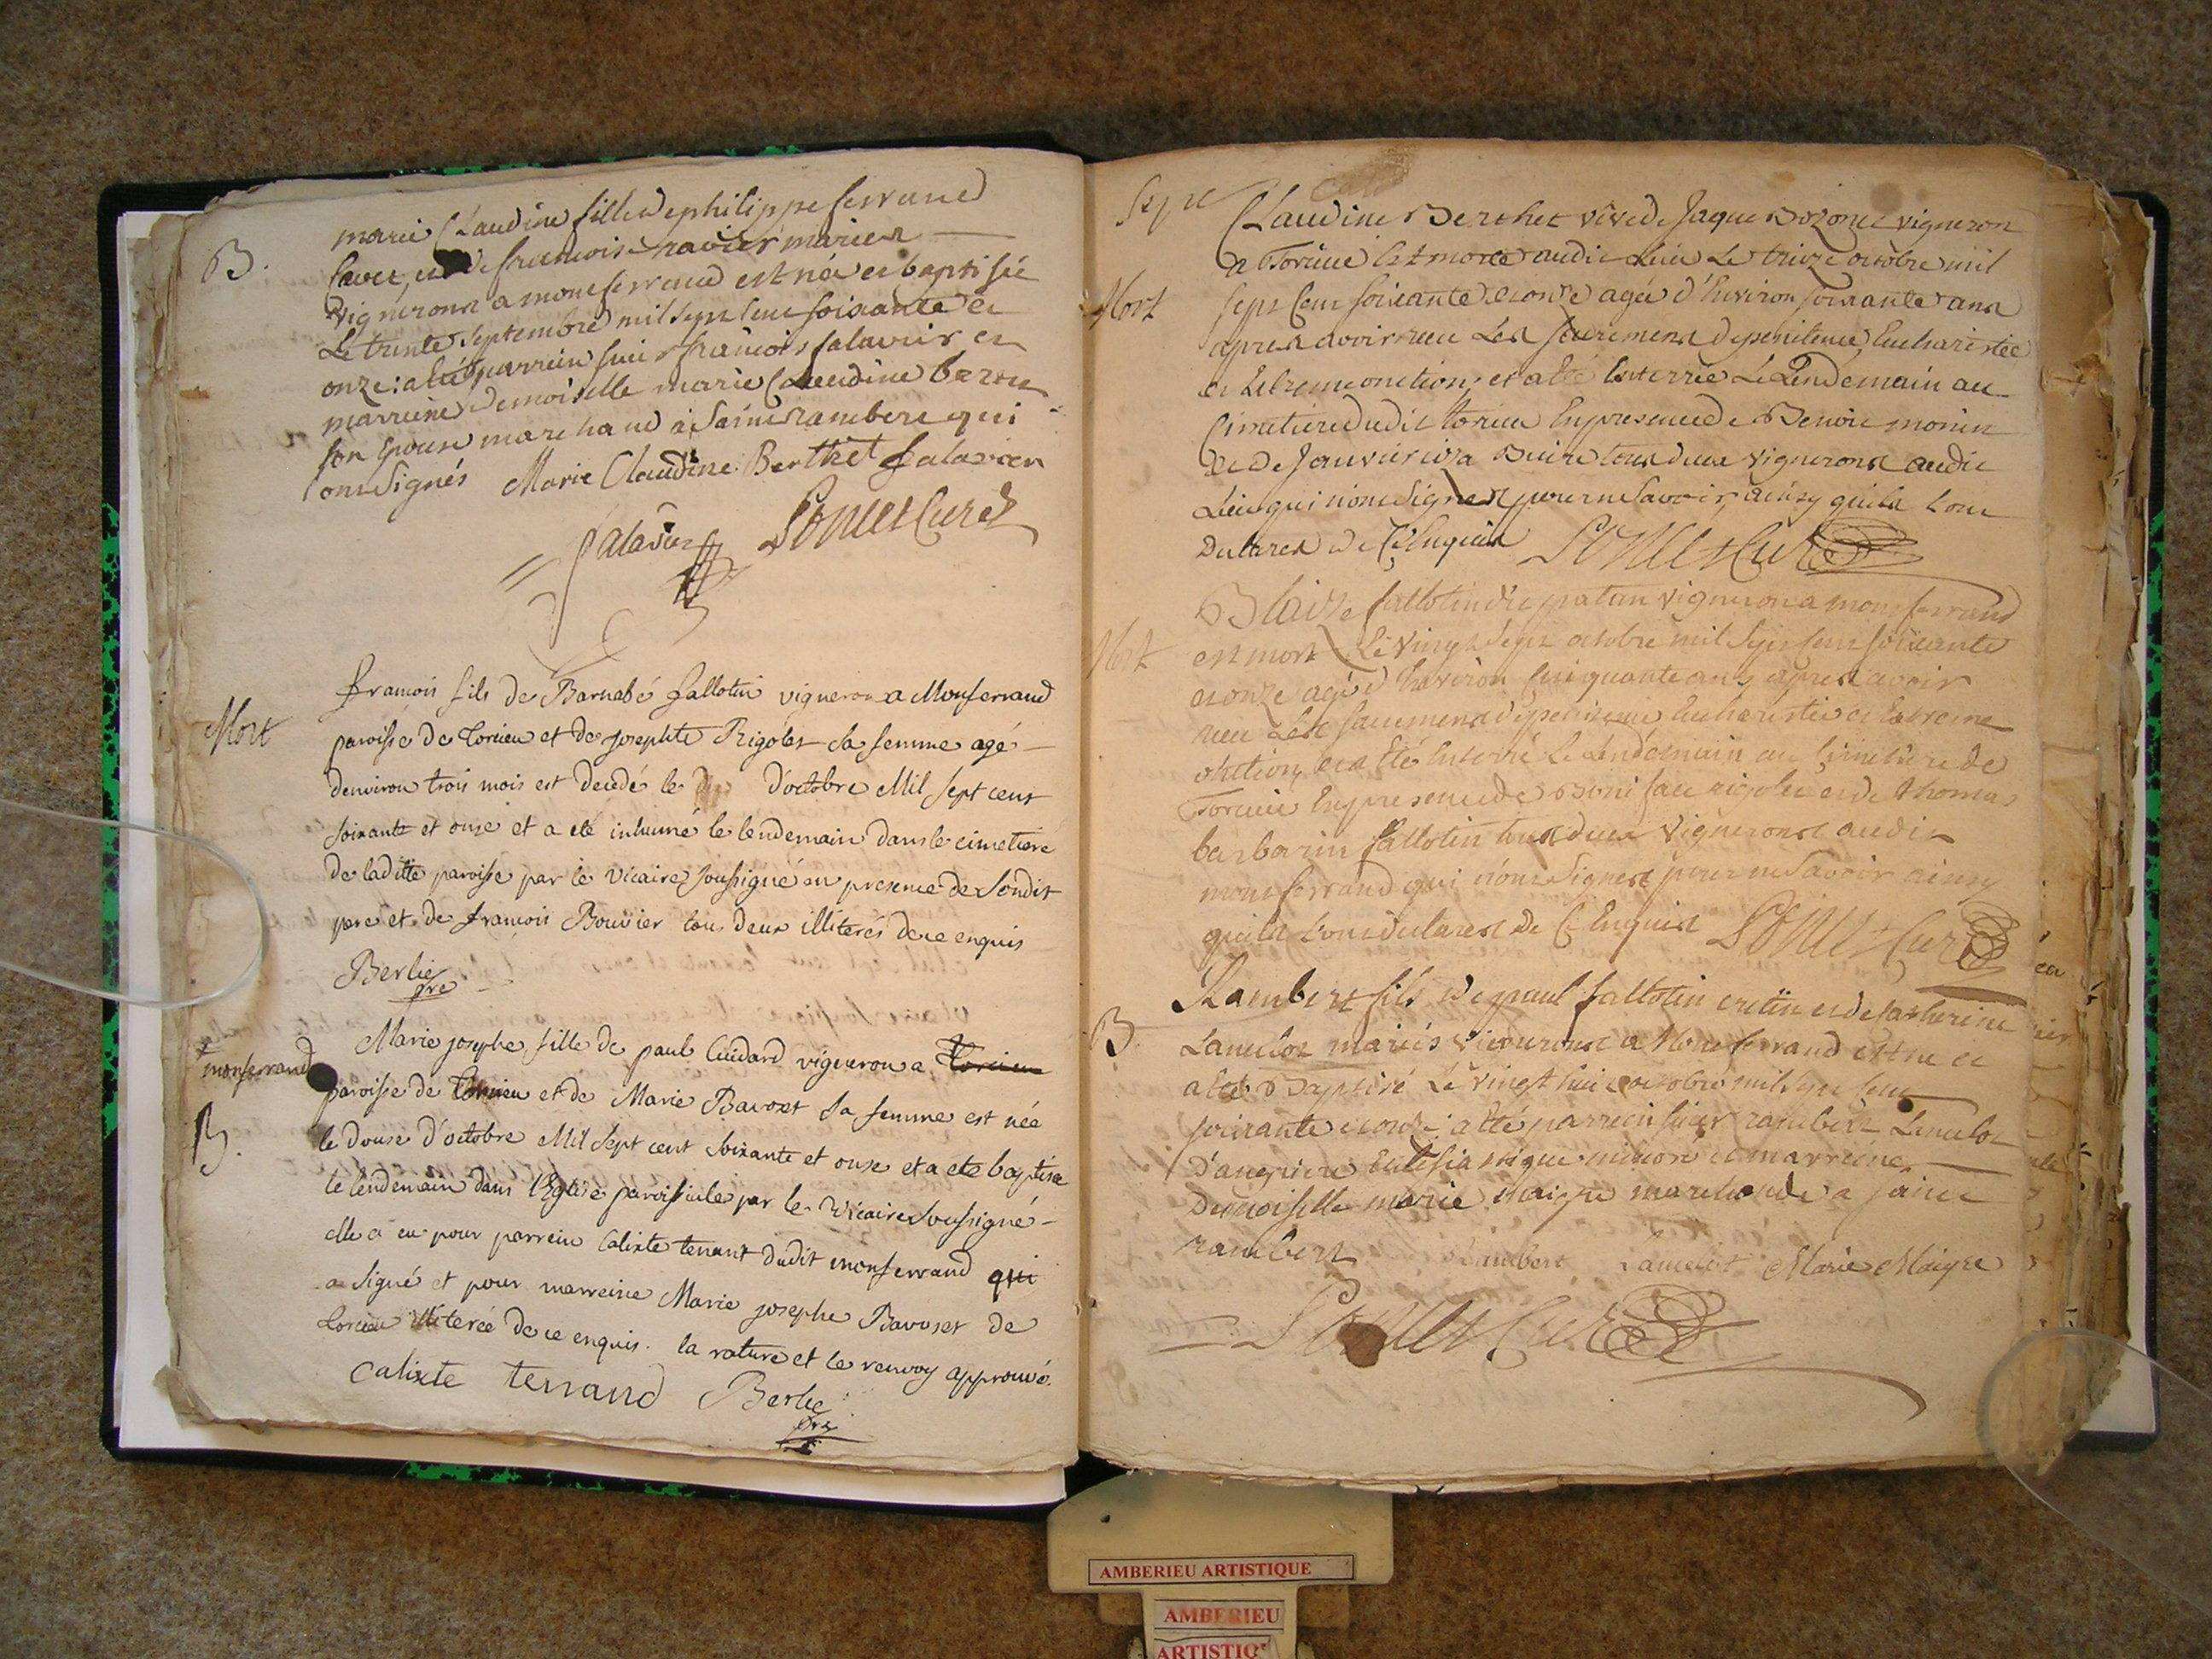 B.
marie Claudine fille de philippe ferrand
favet, et de francoise ravier mariés
vignerons a montferrand est née et baptisée
Le trente septembre mil sept cent soixante et
onze: a été parrein sieur françois salavuir et
marreine demoiselle marie Claudine
son épouse marchand à Saint rambert qui
ont Signés Marie Claudine Berthet
Sonier Curé
Mort
françois fils de Barnabé fallotin vigneron a Monferrand
paroisse de torcieu et de josephte Rigolet sa femme agé
denviron trois mois est decedé le dix d'octobre Mil sept cent
soixante et onze et a eté inhumé le lendemain dans le cimetiere
de laditte paroisse par le vicaire soussigné en presence de sondit
pere et de françois Bouvier tous deux illiterés de ce enquis
Berlie
pre
Marie josephe fille de paul Cuidard vigneron a torcieu
monferrand
paroisse de torcieu et de Marie Bavoset sa femme est née
B.
le douse d'octobre Mil sept cent soixante et onze et a eté baptisé
le lendemain dans l'Eglise paroissiale par le vicaire soussigné
elle a eu pour parrein Calixte tenant dudit monferrand qui
a signé et pour marreine Marie josephe Bavoset de
torcieu illiterée de ce enquis. la rature et le renvoy approuvé.
Calixte tenand Berlie
pre
Sepre
Claudine Berthet vve de Jaque Bozonet vigneron
a Torcieu est morte audit Lieu Le treize octobre mil
Mort
sept cent soixante et onze agée d'environ soixante ans
apres avoir receu Les sacremens de penitence, Eucharistie
et Extremeonction, et a été Enterrée Le Lendemain au
Cimetiere dudit torcieu En presence de Benoit monin
et de Janvier Buire tous deux vignerons audit
Lieu qui n'ont Signer pour ne Savoir ainsy qu'ils L'ont
Declarer de Ce Enquis Sonier Curé
Blaize fallotin dit patan vigneron a montferrand
Mort
est mort Le vingt sept octobre mil sept cent soixante
et onze agé d'Environ Cinquante ans apres avoir
receu Les sacremens de penitence Eucharistie et Extreme
onction, et a Eté Enterré Le Lendemain au Cimetiere de
Torcieu En presence de Boniface rigolet et de thomas
barbarin fallotin tous deux vignerons audit
montferrand qui n'ont Signer pour ne Savoir ainsy
qu'ils L'ont declarer De Ce Enquis Sonier Curé
B.
Rambert fils de paul fallotin cretin et de Catherine
Lancelot mariés vignerons a Montferrand est né et
a été Baptisé Le vingt huit octobre mil sept cent
soixante et onze: a Eté parrein sieur rambert Lancelot
D'angrieres Eclesiastique minoré et marreine
Demoiselle marie maigre marchande a saint
rambert
Rambert Lancelot Marie Maigre
Sonier Curé
AMBERIEU ARTISTIQUE
AMBERIEU
ARTISTIQ